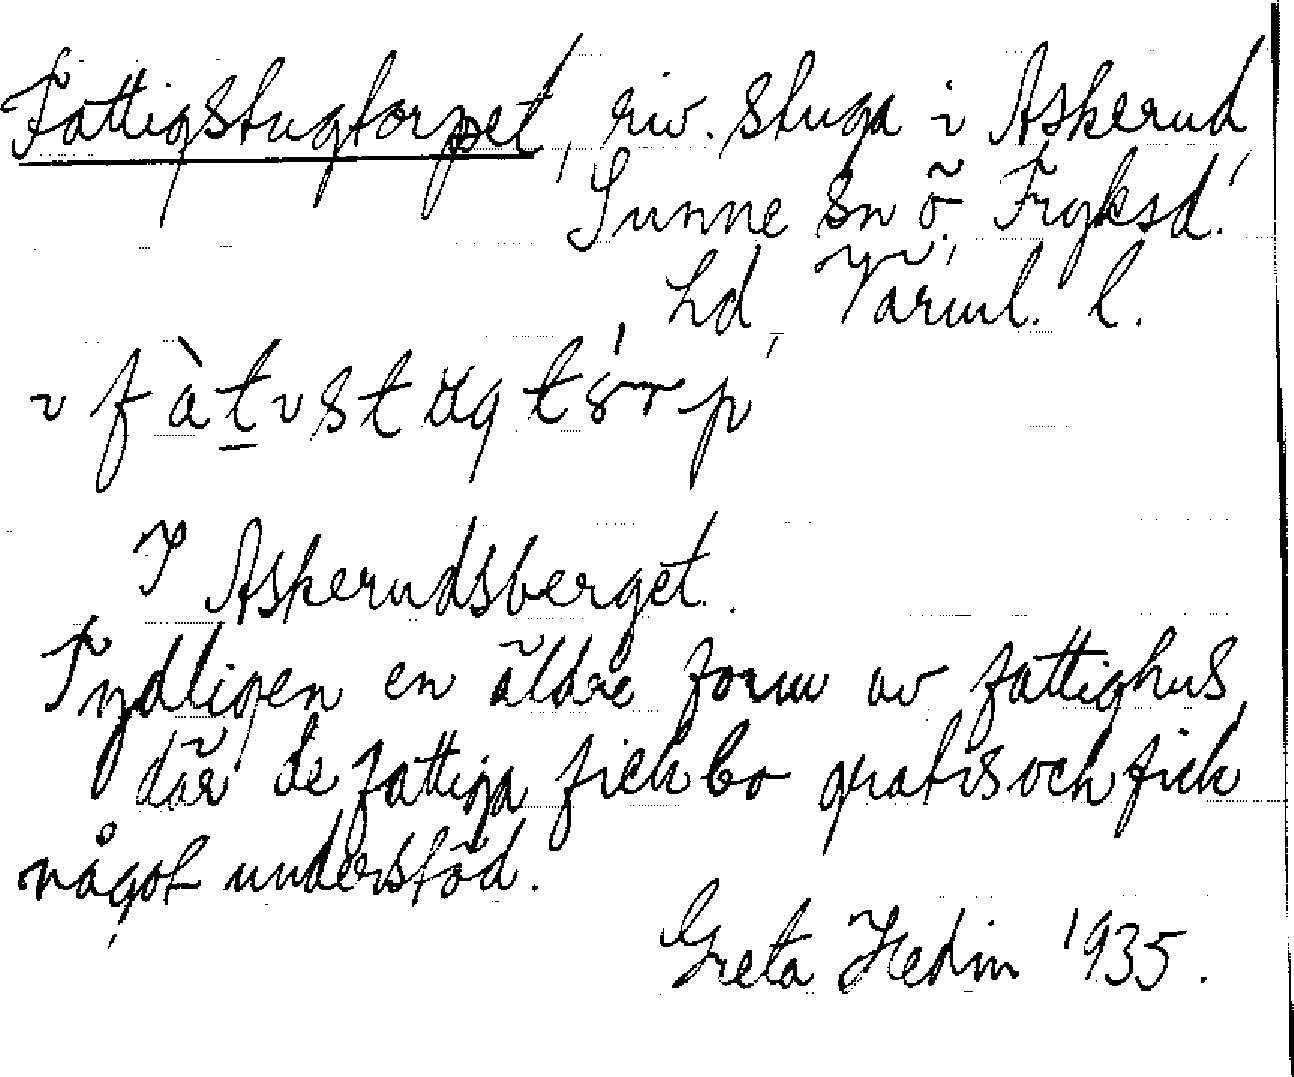 Fattigstugtorpet, riv. stuga i Askerud
Sunne sn Ö. Fryksd.
hd, Värml. l.
I Askerudsberget.
Tydligen en äldre form av fattighus
där de fattiga fick bo gratis och fick
något understöd.
Greta Hedin 1935.